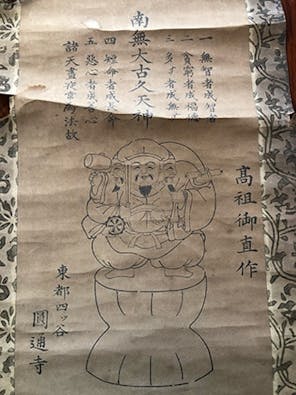 南無大古久天神
一 無智者成智者
二 貧窮者成福德
三 多子者成無
四 短命者成長命
五 惡心者成善心
諸天晝夜常為法故
高祖御直作
東都四ッ谷
圓通寺